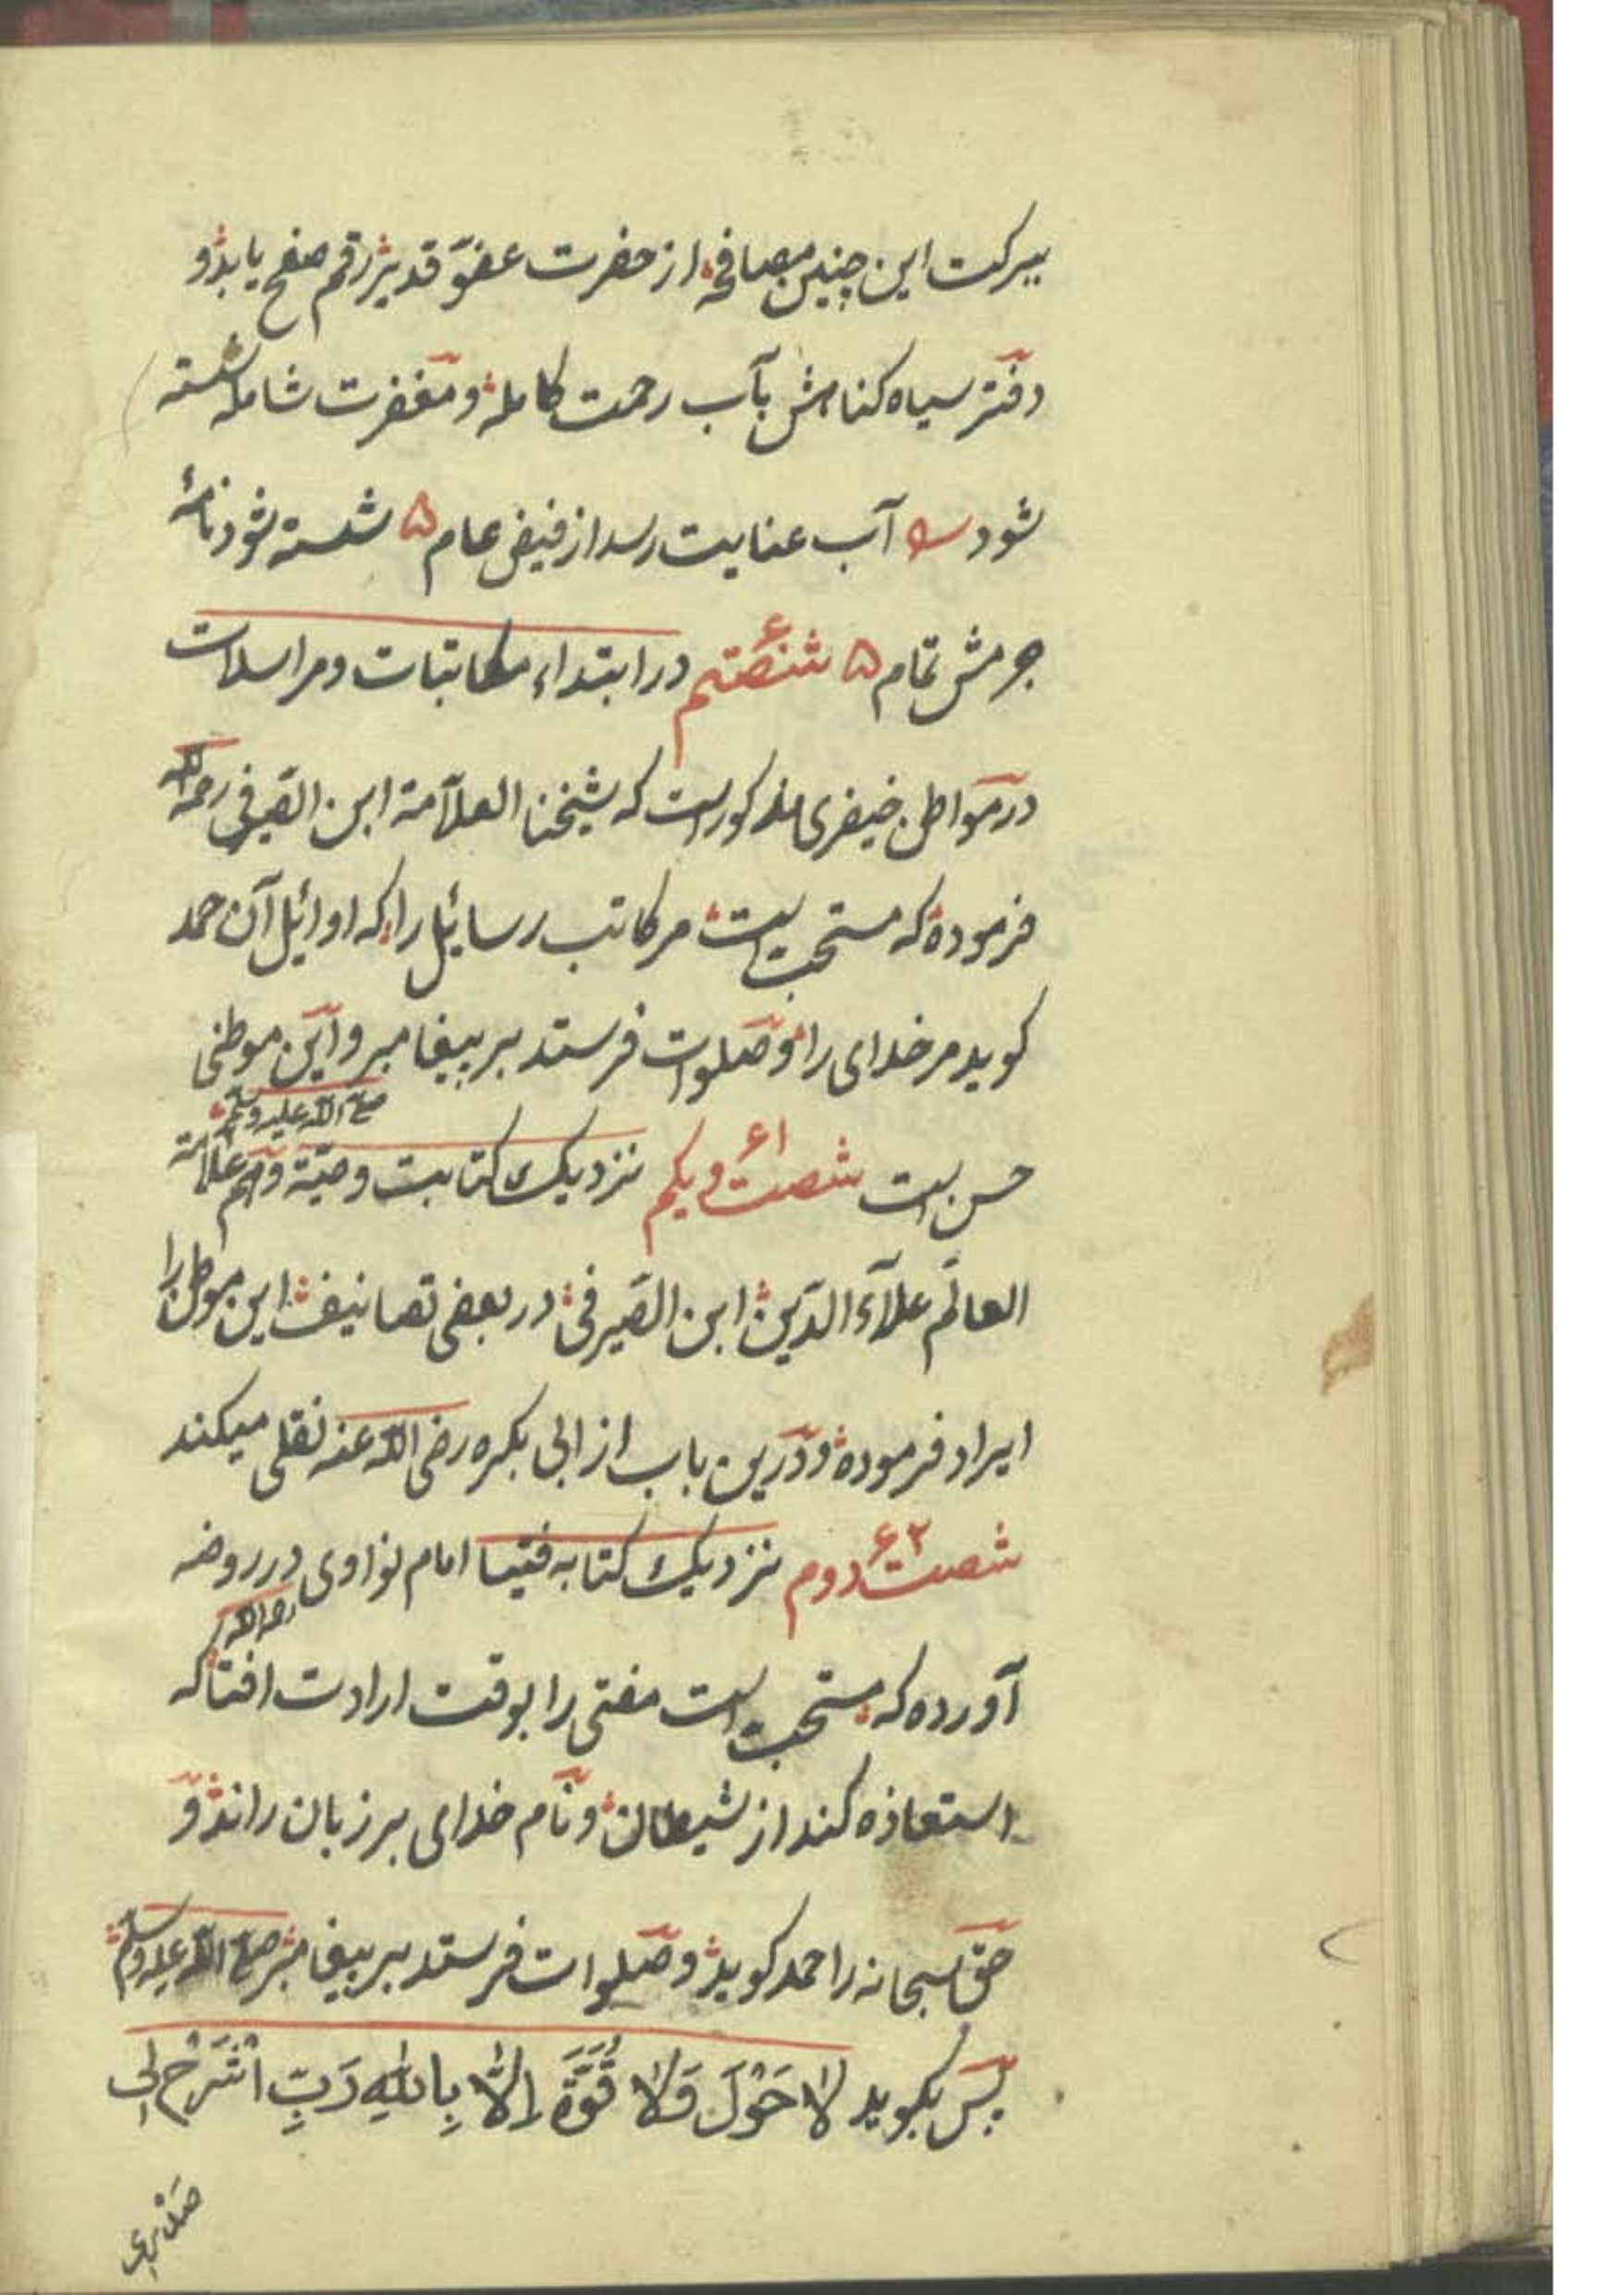 ببرکت این چنین مصافحه از حضرت عفوّ قدیر رقم صفح یابد و
دفتر سیاه کناهش بآب رحمت کامله و مغفرت شامله شسته
شود آب عنایت رسد از فیض عام ۵ شسته شود نامهٔ
جرمش تمام ۵ شصتم ۶ در ابتداء مکاتبات و مراسلات
در مواطن خیضری مذکور است که شیخنا العلّامة ابن الصّیرفی رحمه الله
فرموده که مستحبّ است مر کاتب رسائل را که اوائل آن حمد
کوید مر خدای را و صلوات فرستد بر پیغامبر و این موطنی
صلی الله علیه وسلم
حسن است شصت و یکم ۶۱ نزدیک کتابت وصیّة و هم علامة
العالم علآء الدّین ابن الصّیرفی در بعضی تصانیف این موطن را
ایراد فرموده و درین باب از ابی بکره رضی الله عنه نقلی میکند
شصت دوم ۶۲ نزدیک کتابه فتیا امام نواوی در روضه
رحمه الله
آورده که مستحبّ است مفتی را بوقت ارادت افتا که
استعاذه کند از شیطان و نام خدای بر زبان راند و
حقّ سبحانه را حمد کوید و صلوات فرستد بر پیغامبر صلی الله علیه وسلم
پس بکوید لَا حَوْلَ وَلَا قُوَّةَ اِلَّا بِاللهِ رَبِّ اشْرَحْ لِی
صَدْرِی